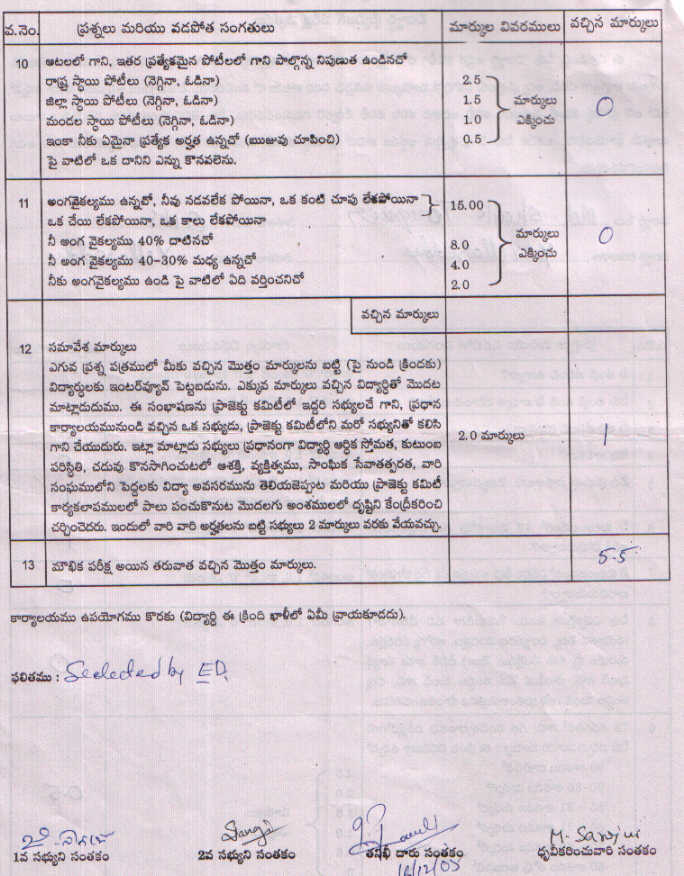 వ.నెం. ప్రశ్నలు మరియు వడపోత సంగతులు మార్కుల వివరములు వచ్చిన మార్కులు
10 ఆటలలో గాని, ఇతర ప్రత్యేకమైన పోటీలలో గాని పాల్గొన్న నిపుణుత ఉండినచో
రాష్ట్ర స్థాయి పోటీలు (నెగ్గినా, ఓడినా) 2.5
జిల్లా స్థాయి పోటీలు (నెగ్గినా, ఓడినా) 1.5 మార్కులు 0
మండల స్థాయి పోటీలు (నెగ్గినా, ఓడినా) 1.0 ఎక్కించు
ఇంకా నీకు ఏమైనా ప్రత్యేక అర్హత ఉన్నచో (ఋజువు చూపించి) 0.5
పై వాటిలో ఒక దానిని ఎన్ను కొనవలెను.
11 అంగవైకల్యము ఉన్నచో, నీవు నడవలేక పోయినా, ఒక కంటి చూపు లేకపోయినా 15.00
ఒక చేయి లేకపోయినా, ఒక కాలు లేకపోయినా మార్కులు 0
నీ అంగ వైకల్యము 40% దాటినచో 8.0 ఎక్కించు
నీ అంగ వైకల్యము 40-30% మధ్య ఉన్నచో 4.0
నీకు అంగవైకల్యము ఉండి పై వాటిలో ఏది వర్తించనిచో 2.0
వచ్చిన మార్కులు
12 సమావేశ మార్కులు
ఎగువ ప్రశ్న పత్రములో మీకు వచ్చిన మొత్తం మార్కులను బట్టి (పై నుండి క్రిందకు)
విద్యార్థులకు ఇంటర్వ్యూవ్ పెట్టబడును. ఎక్కువ మార్కులు వచ్చిన విద్యార్థితో మొదట
మాట్లాడుదుము. ఈ సంభాషణను ప్రాజెక్టు కమిటీలో ఇద్దరి సభ్యులచే గాని, ప్రధాన
కార్యాలయమునుండి వచ్చిన ఒక సభ్యుడు, ప్రాజెక్టు కమిటీలోని మరో సభ్యునితో కలిసి
గాని చేయుదురు. ఇట్లా మాట్లాడు సభ్యులు ప్రధానంగా విద్యార్థి ఆర్థిక స్తోమత, కుటుంబ 2.0 మార్కులు 1
పరిస్థితి, చదువు కొనసాగించుటలో ఆశక్తి, వ్యక్తిత్వము, సాంఘిక సేవాతత్పరత, వారి
సంఘములోని పెద్దలకు విద్యా అవసరమును తెలియజెప్పుట మరియు ప్రాజెక్టు కమిటీ
కార్యకలాపములలో పాలు పంచుకొనుట మొదలగు అంశములలో దృష్టిని కేంద్రీకరించి
చర్చించెదరు. ఇందులో వారి వారి అర్హతలను బట్టి సభ్యులు 2 మార్కులు వరకు వేయవచ్చు.
13 మౌఖిక పరీక్ష అయిన తరువాత వచ్చిన మొత్తం మార్కులు. 5.5
కార్యాలయము ఉపయోగము కొరకు (విద్యార్థి ఈ క్రింది ఖాళీలో ఏమీ వ్రాయకూడదు).
ఫలితము : Seclected by ED.
M. Sarojini
1వ సభ్యుని సంతకం 2వ సభ్యుని సంతకం తనిఖీ దారు సంతకం ధృవీకరించువారి సంతకం
16/12/05